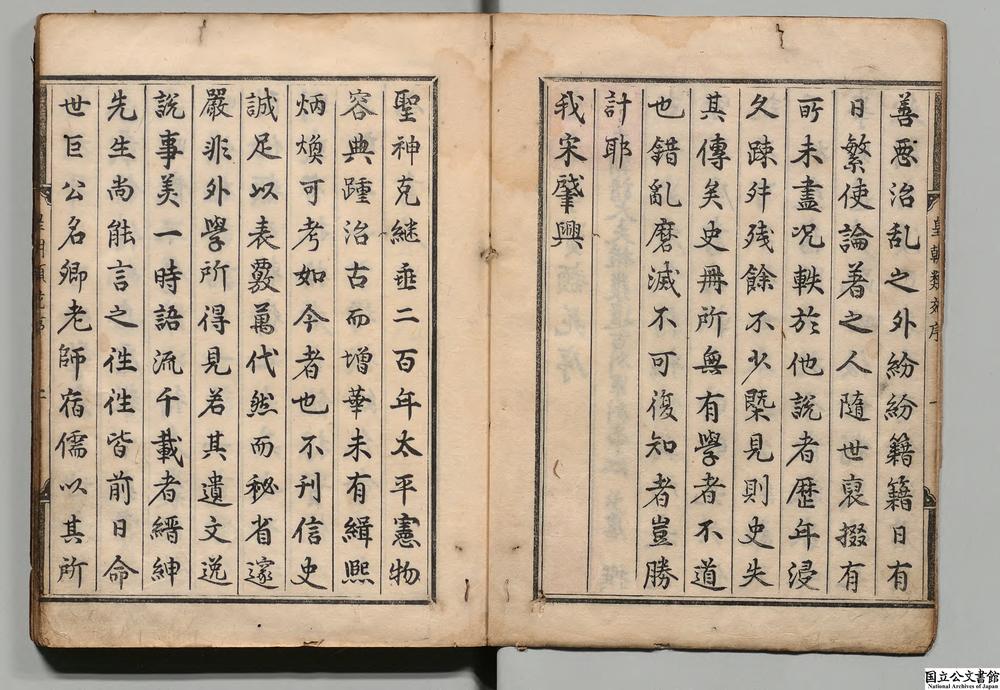 善惡治乱之外紛紛籍籍日有
日繁使論著之人隨世裒掇有
所未盡况軼於他說者歷年浸
久踈舛残餘不少槩見則史失
其傳矣史冊所無有學者不道
也錯亂磨滅不可復知者豈勝
計耶
我宋肇興
聖神克継垂二百年太平憲物
容典踵治古而增華未有緝熙
炳煥可考如今者也不刊信史
誠足以表覈萬代然而秘省邃
嚴非外學所得見若其遺文逸
說事美一時語流千載者縉紳
先生尚能言之徃徃皆前日命
世巨公名卿老師宿儒以其所
皇朝類苑序
一
国立公文書館
National Archives of Japan